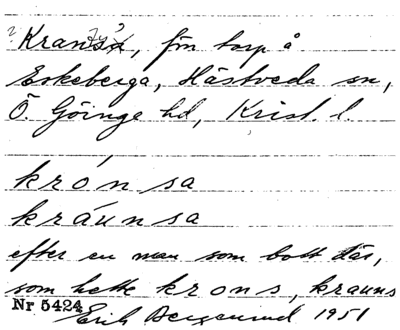 Krans, fm torp å
Eskeberga, Hästveda sn,
Ö. Göinge hd, Krist. l.
krónsa
kräunsa
efter en man som bott där,
som hette krons, krauns
Nr 5424
Erik 1951